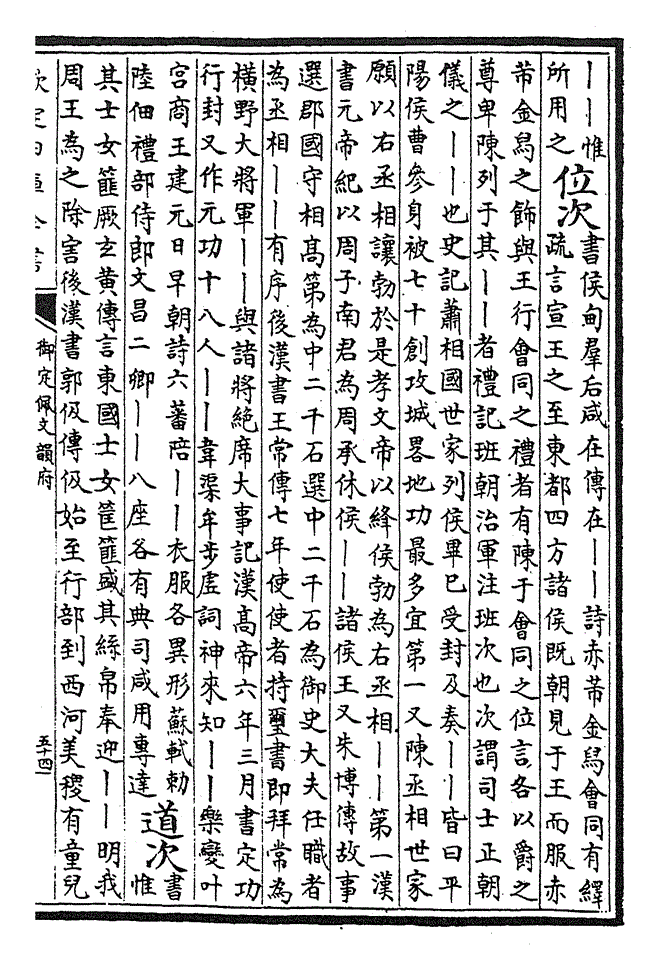 ｜｜惟
所用之
位次
書侯甸羣后咸在傳在｜｜詩赤芾金舄會同有繹
疏言宣王之至東都四方諸侯既朝見于王而服赤
芾金舄之飾與王行會同之禮者有陳于會同之位言各以爵之
尊卑陳列于其｜｜者禮記班朝治軍注班次也次謂司士正朝
儀之｜｜也史記蕭相國世家列侯畢已受封及奏｜｜皆曰平
陽侯曹參身被七十創攻城畧地功最多宜第一又陳丞相世家
願以右丞相讓勃於是孝文帝以絳侯勃為右丞相｜｜第一漢
書元帝紀以周子南君為周承休侯｜｜諸侯王又朱博傳故事
選郡國守相高第為中二千石選中二千石為御史大夫任職者
為丞相｜｜有序後漢書王常傳七年使使者持璽書即拜常為
橫野大將軍｜｜與諸將絶席大事記漢高帝六年三月書定功
行封又作元功十八人｜｜韋渠牟步虛詞神來知｜｜樂變叶
宮商王建元日早朝詩六蕃陪｜｜衣服各異形蘇軾勅
陸佃禮部侍郎文昌二卿｜｜八座各有典司咸用專達
道次
書
惟
其士女篚厥玄黃傳言東國士女筐篚盛其絲帛奉迎｜｜明我
周王為之除害後漢書郭伋傳伋始至行部到西河美稷有童兒
欽定四庫全書
御定佩文韻府
五十四